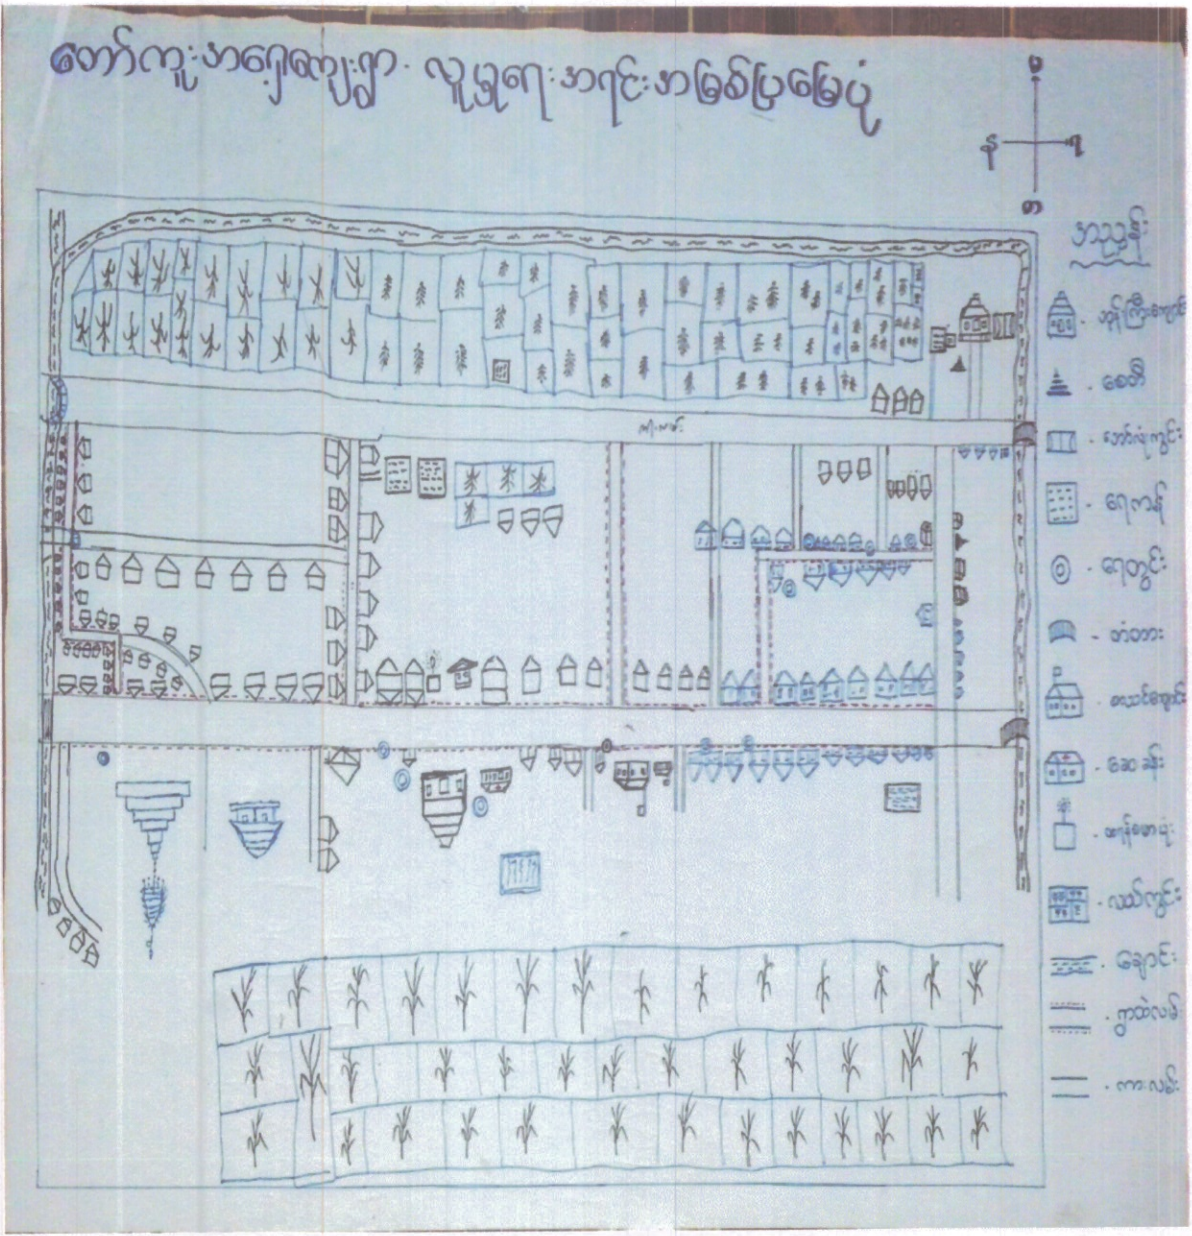 တော်ကူးအရှေ့ကျေးရွာ. လူမှုရေးအရင်းအမြစ်ပြမြေပုံ
မ
န
ရ
တ
အညွှန်း
ဘုန်းကြီးကျောင်း
စေတီ
ဘော်လုံးကွင်း
ရေကန်
ရေတွင်း
တံတား
စာသင်ကျောင်း
ဆေးခန်း
လယ်ကွင်း
ချောင်း
ရွာထဲလမ်း
ကားလမ်း